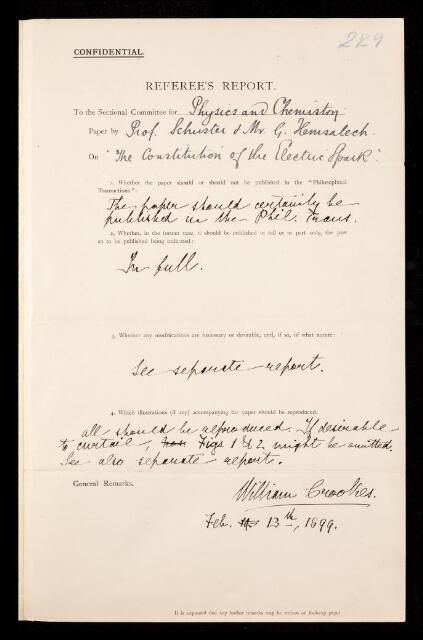 289
CONFIDENTIAL.
REFEREE'S REPORT.
To the Sectional Committee for Physics and Chemistry
Paper by Prof. Schuster & Mr. G. Hemsalech.
On "The Constitution of the Electric Spark".
1. Whether the paper should or should not be published in the "Philosophical
Transactions":
The paper should certainly be
published in the Phil. Trans.
2. Whether, in the former case, it should be published in full or in part only, the part
so to be published being indicated:
In full.
3. Whether any modifications are necessary or desirable, and, if so, of what nature:
See separate report.
4. Which illustrations (if any) accompanying the paper should be reproduced.
All should be reproduced. If desirable
to curtail, Figs 1 & 2 might be omitted.
See also separate report.
General Remarks.
William Crookes.
Feb. 13th, 1899.
It is requested that any further remarks may be written on foolscap paper